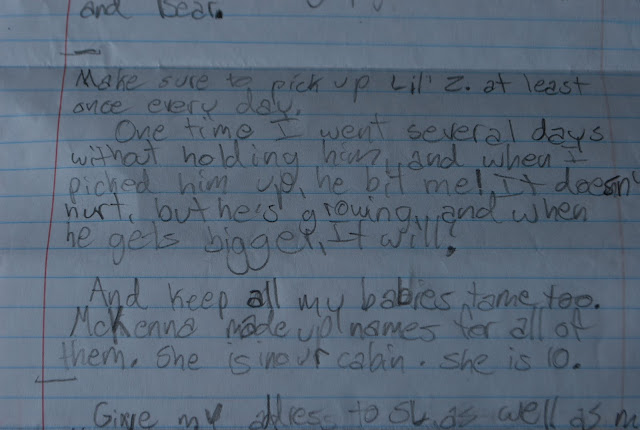 and Bear.
Make sure to pick up Lil' Z. at least
once every day.
One time I went several days
without holding him, and when I
picked him up, he bit me! It doesn'
hurt, but he's growing, and when
he gets bigger, It will!
And keep all my babies tame, too.
McKenna made up names for all of
them. She is in our cabin. she is 10.
Give my address to as well as m